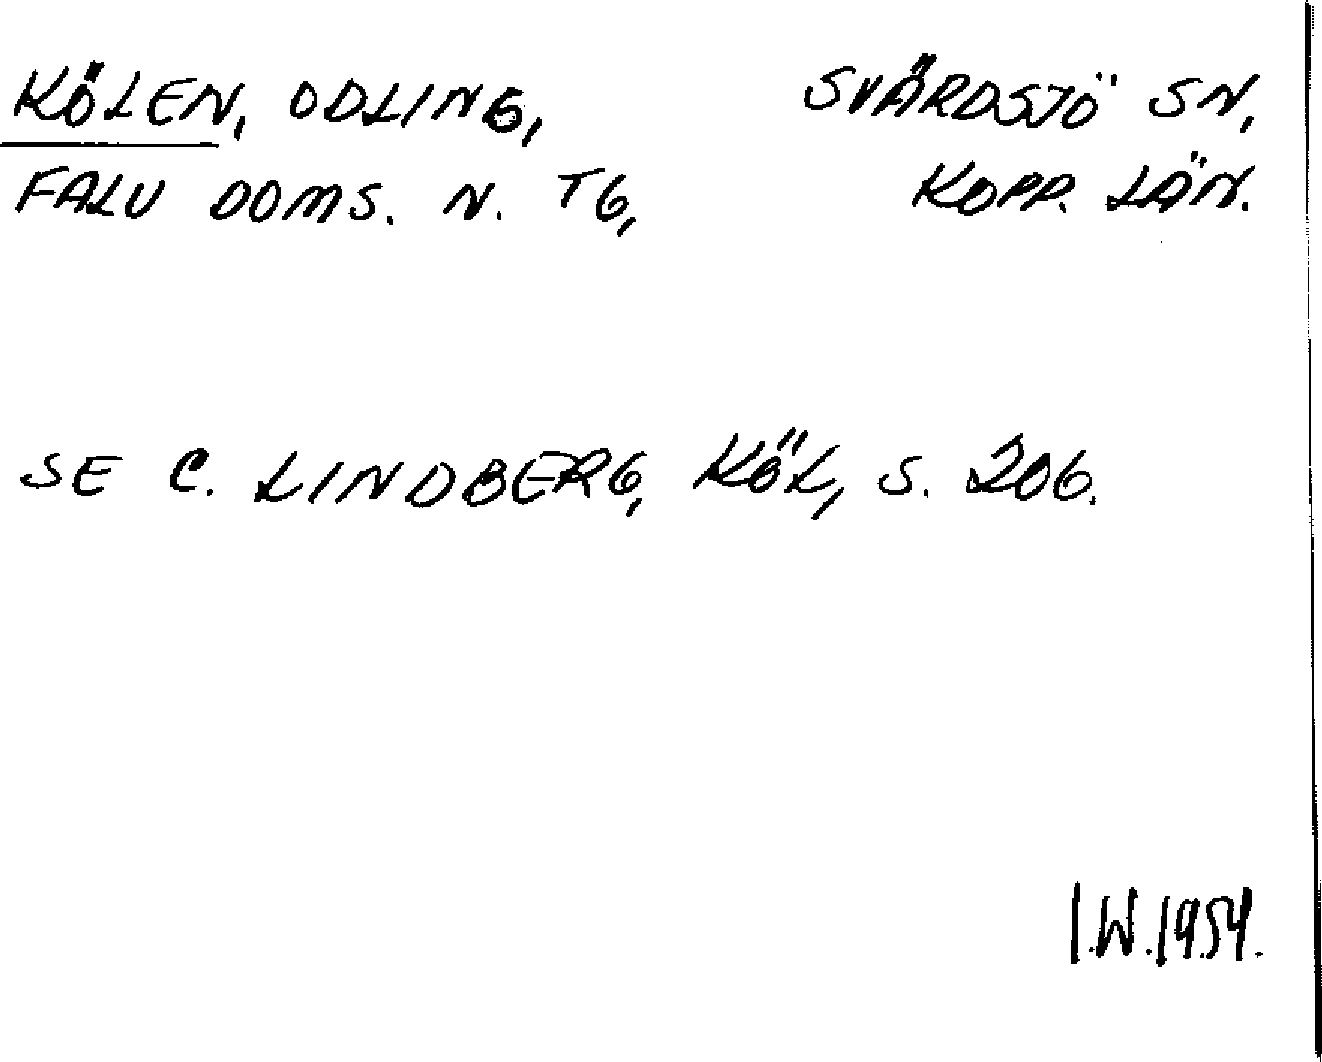 KÖLEN, ODLING, SVÄRDSJÖ SN,
FALU DOMS. N. TG, KOPP. LÄN.
SE C. LINDBERG, KÖL, S. 206.
I.W.1954.